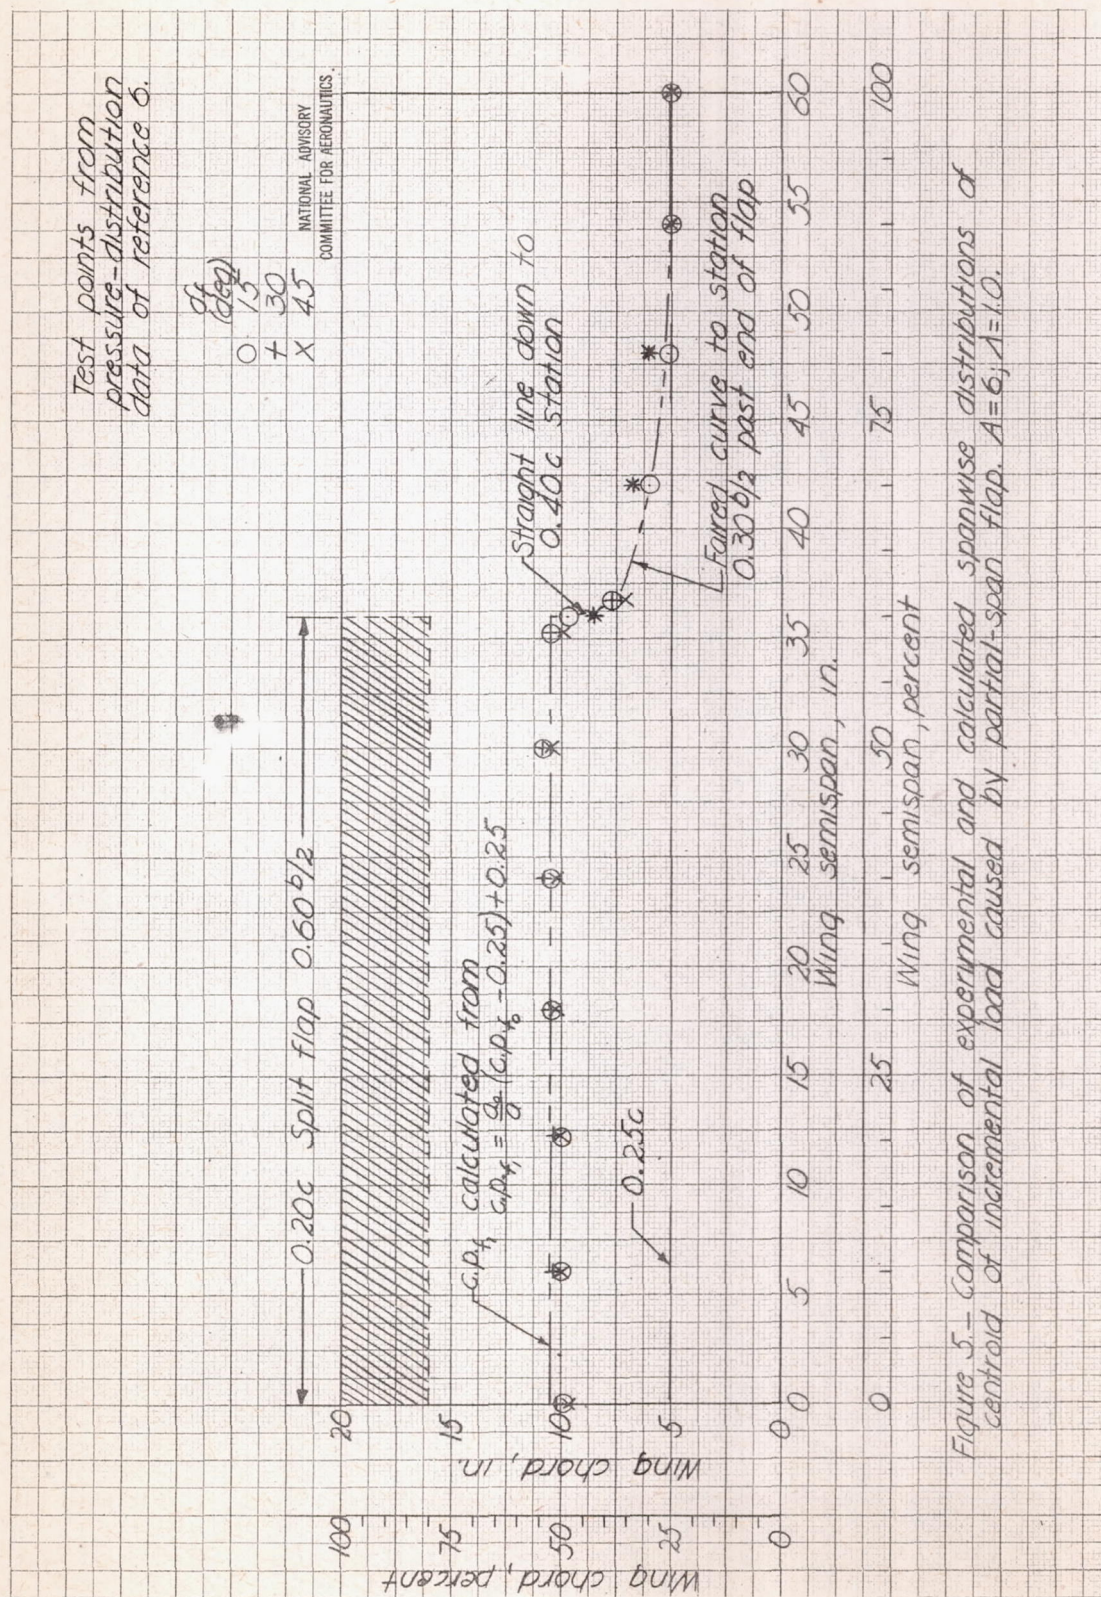 Test points from
pressure-distribution
data of reference 6.
δf
(deg)
O 15
+ 30
x 45
NATIONAL ADVISORY
COMMITTEE FOR AERONAUTICS.
0.20c Split flap 0.60 b/2
c.p.f₁ calculated from
c.p.f₁ = a₀/a (c.p.f₀ - 0.25) + 0.25
Straight line down to
0.40c station
Faired curve to station
0.30 b/2 past end of flap
0.25c
Wing chord, percent
100
75
50
25
0
Wing chord, in.
20
15
10
5
0
0 5 10 15 20 25 30 35 40 45 50 55 60
Wing semispan, in.
0 25 50 75 100
Wing semispan, percent
Figure 5.- Comparison of experimental and calculated spanwise distributions of
centroid of incremental load caused by partial-span flap. A=6; λ=1.0.